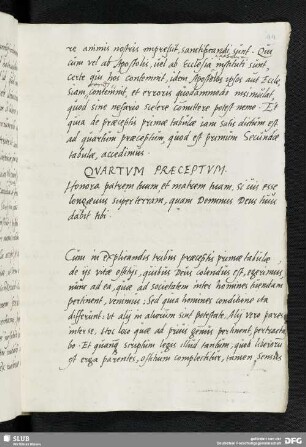 re animis nostris impressit, sanctificandi sunt. Qui
cum vel ab Apostolis, vel ab Ecclesia instituti sint,
certe qui hos contemnit, idem Apostolos ipsos aut Eccle
siam contemnit, et erroris quodammodo insimulat,
quod sine nefario scelere committere potest nemo. Et
quia de præceptis primæ tabulæ iam satis dictum est
ad quartum præceptum, quod est primum Secundæ
tabulæ, accedimus.
QVARTVM PRÆCEPTVM.
Honora patrem tuum et matrem tuam, si vis esse
longævus super terram, quam Dominus Deus tuus
dabit tibi.
Cum in explicandis tribus præceptis primæ tabulæ
de iis totæ officiis, quibus Deus colendus est, egerimus
nunc ad ea, quæ ad societatem inter homines tuendam
pertinent, venimus. Sed quia homines conditione ita
differunt: ut alij in aliorum sint potestate, Alij vero pares
inter se, Hoc loco quæ ad prius genus pertinent, pertracta
bo. Et quamquam scriptum legis illud tantum, quod liberorum
est erga parentes, officium complectitur, tamen sensus
SLUB
DFG